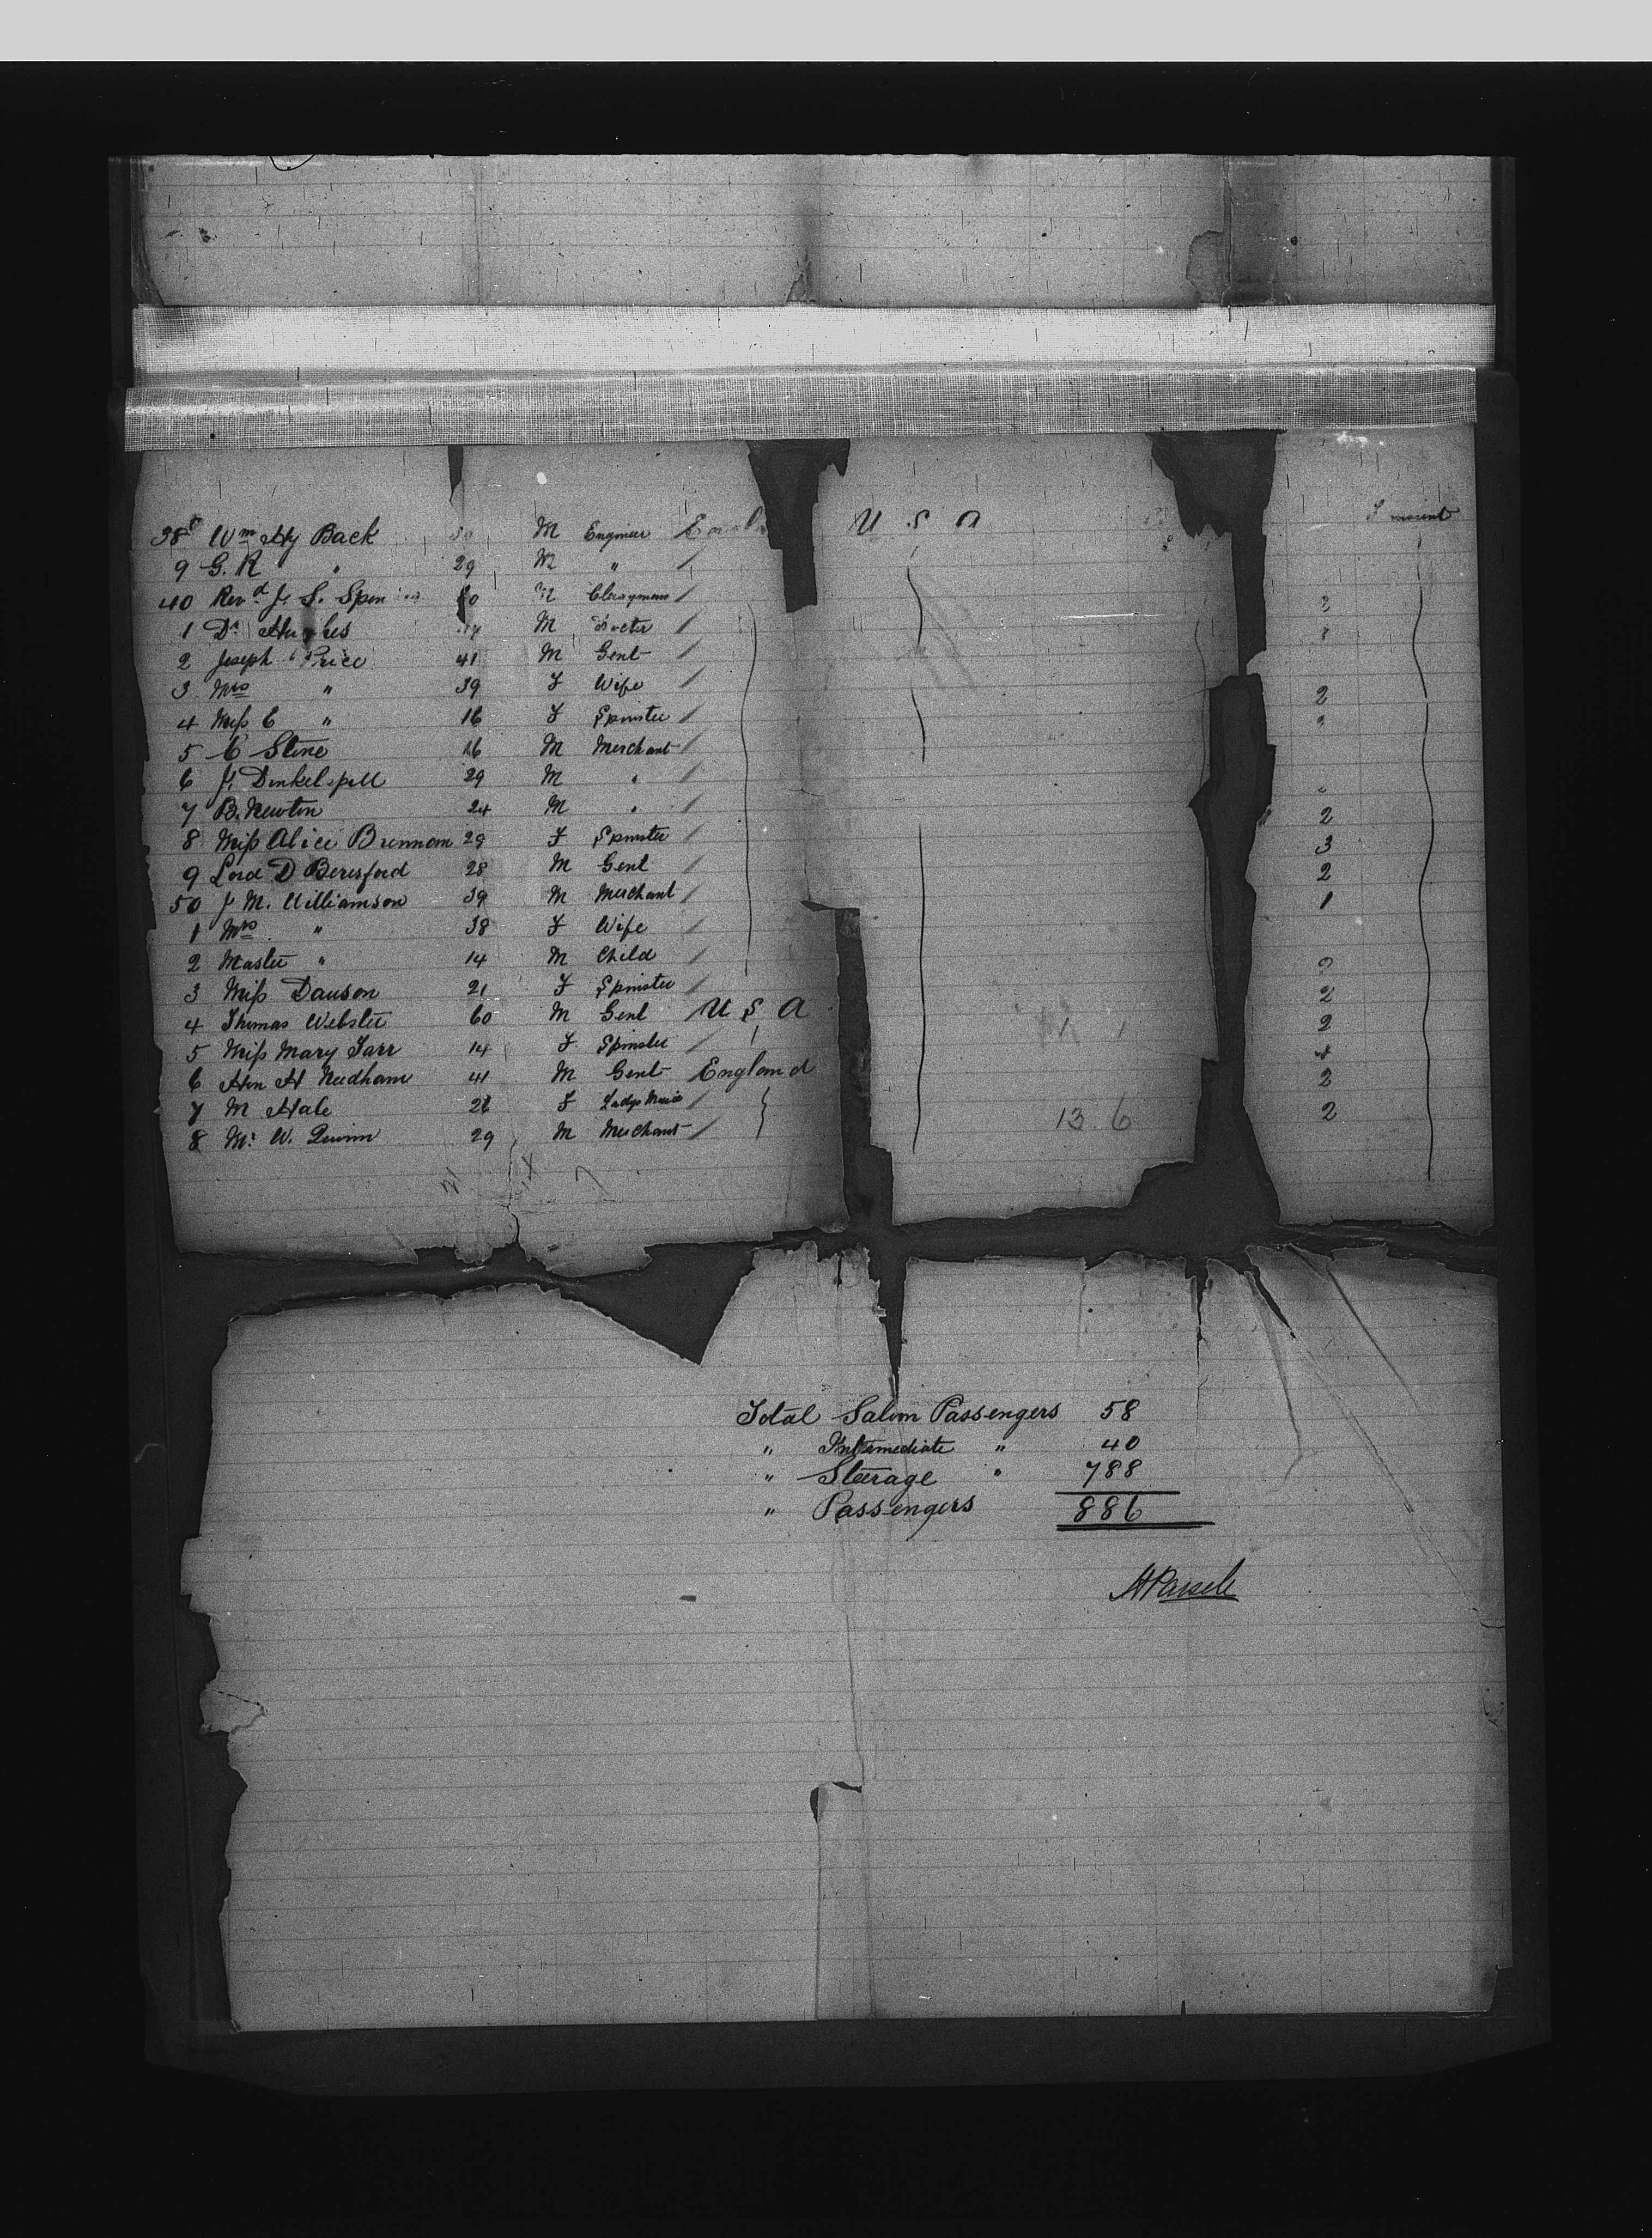 38 Wm Hy Back M Engineer U S A
9 G. R " 29 M " /
40 Revd J. S. M Clergyman /
1 Dr Hughes M Doctor /
2 Joseph Price 41 M Gent /
3 Mrs " 39 F Wife / 2
4 Miss C " 16 F Spinster /
5 C Stine M Merchant /
6 J. Dinkelspill 29 M " /
7 B. Newton 24 M " / 2
8 Miss Alice Brennan 29 F Spinster / 3
9 Lord D Beresford 28 M Gent / 2
50 J M. Williamson 39 M Merchant / 1
1 Mrs " 38 F Wife /
2 Master " 14 M Child / 2
3 Miss Dawson 21 F Spinster / 2
4 Thomas Webster 60 M Gent U S A 2
5 Miss Mary Tarr 14 F Spinster /
6 Hon H Needham 41 M Gent England 2
7 M Hale F Ladys Maid / 2
8 Mr W. Quinn 29 M Merchant / 13.6
Total Saloon Passengers 58
" Intermediate " 40
" Steerage " 788
" Passengers 886